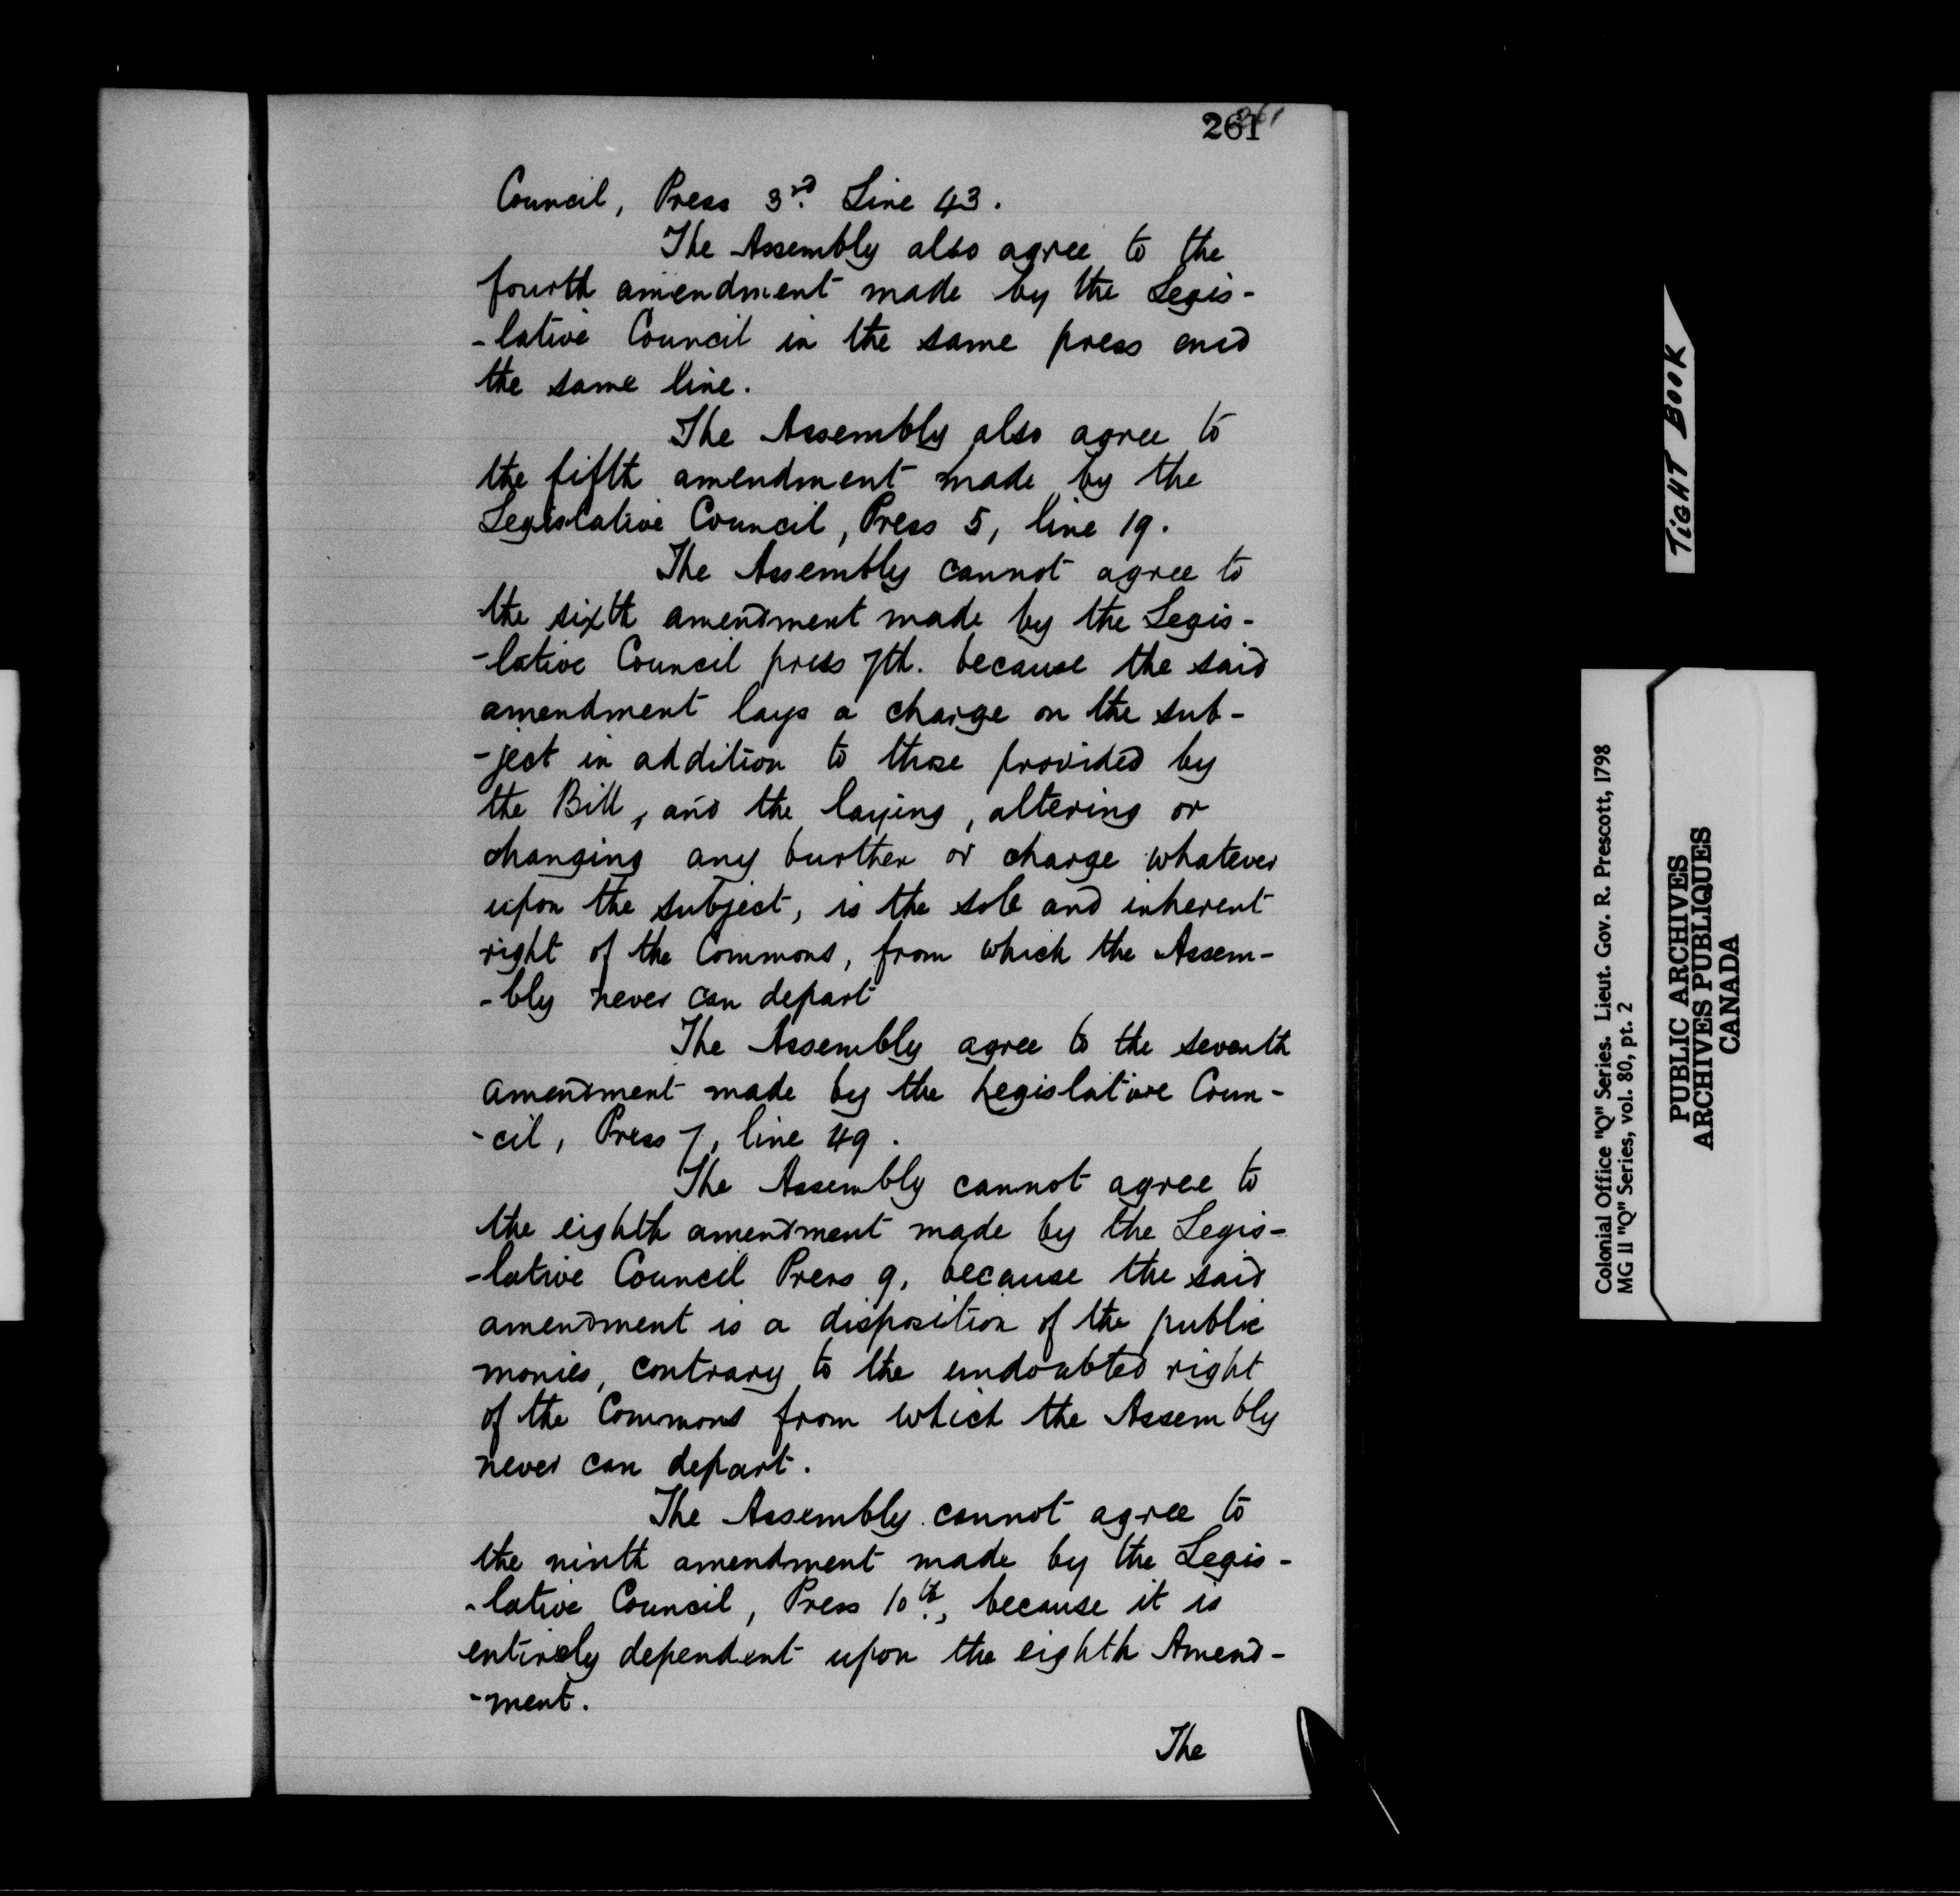 261
261
Council, Press 3rd. Line 43.
The Assembly also agree to the
fourth amendment made by the Legis-
-lative Council in the same press and
the same line.
The Assembly also agree to
the fifth amendment made by the
Legislative Council, Press 5, line 19.
The Assembly cannot agree to
the sixth amendment made by the Legis-
-lative Council press 7th. because the said
amendment lays a charge on the sub-
-ject in addition to those provided by
the Bill, and the laying, altering or
changing any burthen or charge whatever
upon the subject, is the sole and inherent
right of the Commons, from which the Assem-
-bly never can depart
The Assembly agree to the seventh
amendment made by the Legislative Coun-
-cil, Press 7, line 49.
The Assembly cannot agree to
the eighth amendment made by the Legis-
-lative Council Press 9, because the said
amendment is a disposition of the public
monies, contrary to the undoubted right
of the Commons from which the Assembly
never can depart.
The Assembly cannot agree to
the ninth amendment made by the Legis-
-lative Council, Press 10th., because it is
entirely dependent upon the eighth Amend-
-ment.
The
TIGHT BOOK
Colonial Office "Q" Series. Lieut. Gov. R. Prescott, 1798
MG 11 "Q" Series, vol. 80, pt. 2
PUBLIC ARCHIVES
ARCHIVES PUBLIQUES
CANADA